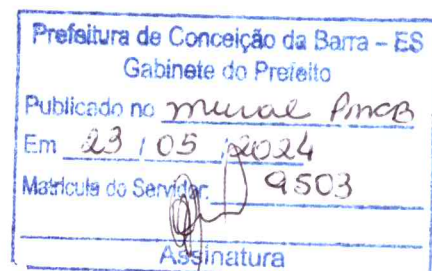 Prefeitura de Conceição da Barra – ES
Gabinete do Prefeito
Publicado no mural PMCB
Em 23 / 05 / 2024
Matrícula do Servidor 9503
Assinatura